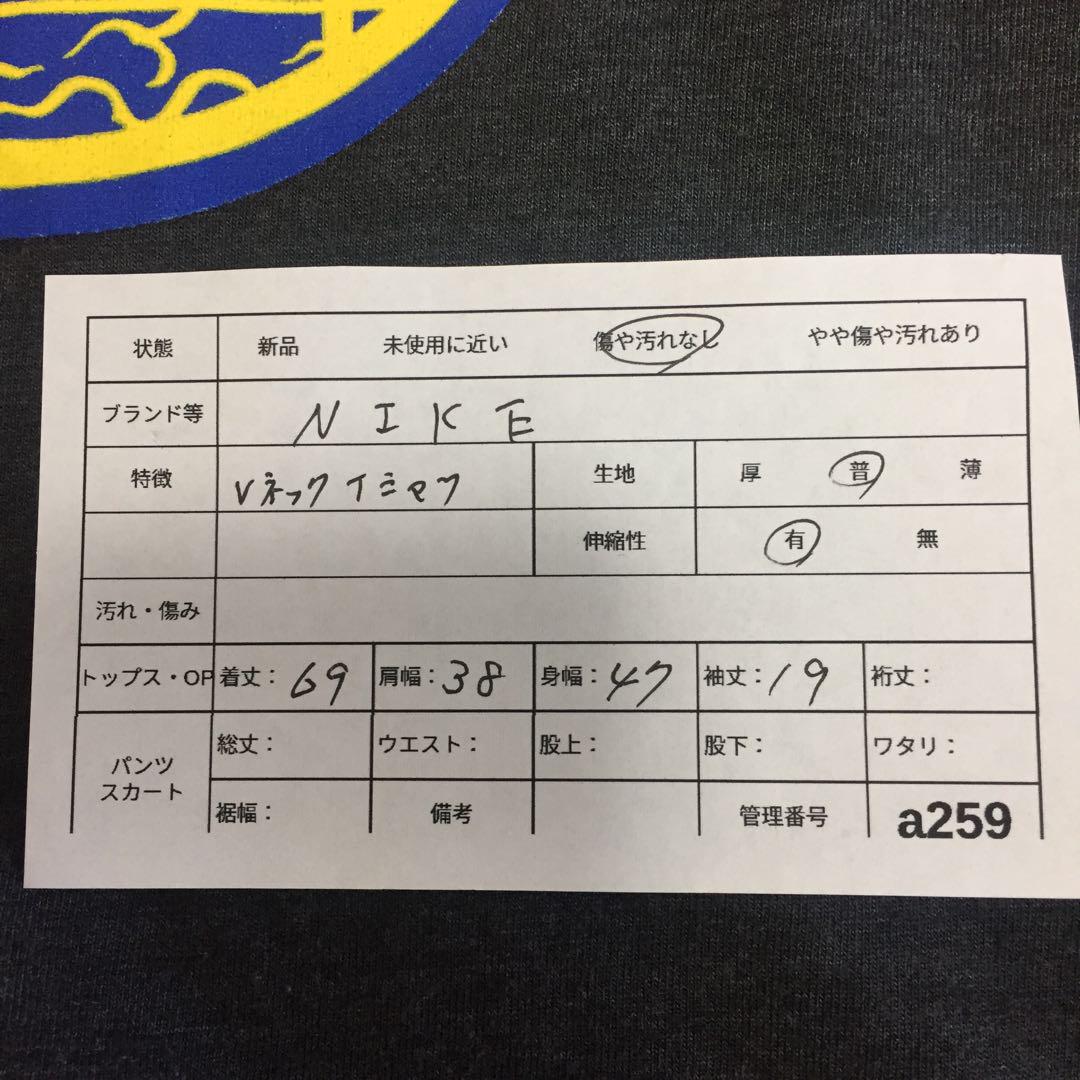 状態 新品 未使用に近い 傷や汚れなし やや傷や汚れあり
ブランド等 NIKE
特徴 VネックTシャツ 生地 厚 普 薄
伸縮性 有 無
汚れ・傷み
トップス・OP 着丈： 69 肩幅： 38 身幅： 47 袖丈： 19 裄丈：
パンツ スカート 総丈： ウエスト： 股上： 股下： ワタリ：
裾幅： 備考 管理番号 a259